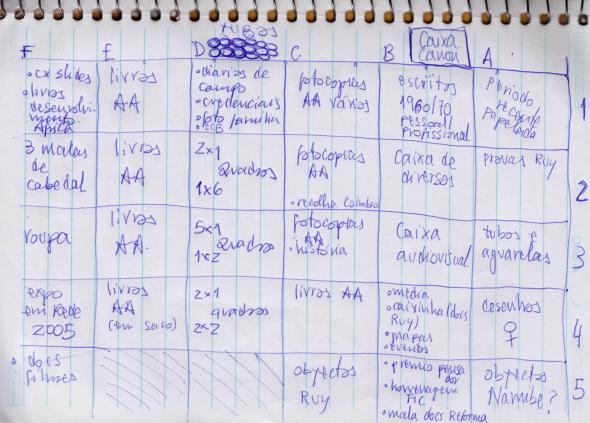 tubos
Caixa
Canon
F
E
D
C
B
A
• cx slides
• livros
desenvolvi-
mento
África
livros
AA
• diários de
campo
• credenciais
• foto família
fotocopias
AA vários
escritos
1960/70
pessoal
profissional
Período
recente
Papelada
1
3 malas
de
cabedal
livros
AA
2x1
Quadros
1x6
fotocopias
AA
• recolha Coimbra
Caixa de
diversos
provas Ruy
2
roupa
livros
AA.
5x1
Quadros
1x2
fotocopias
AA
• história
Caixa
audiovisual
tubos e
aguarelas
3
expo
em Rede
2005
livros
AA
(em saco)
2x1
quadros
2x2
livros AA
• media
• caixinha (docs
Ruy)
• mapas
• eventos
desenhos
♀
4
• docs
filmes
objectos
Ruy
• prémio pensa
dor
• homenagem
• mala docs Reforma
objectos
Namibe?
5